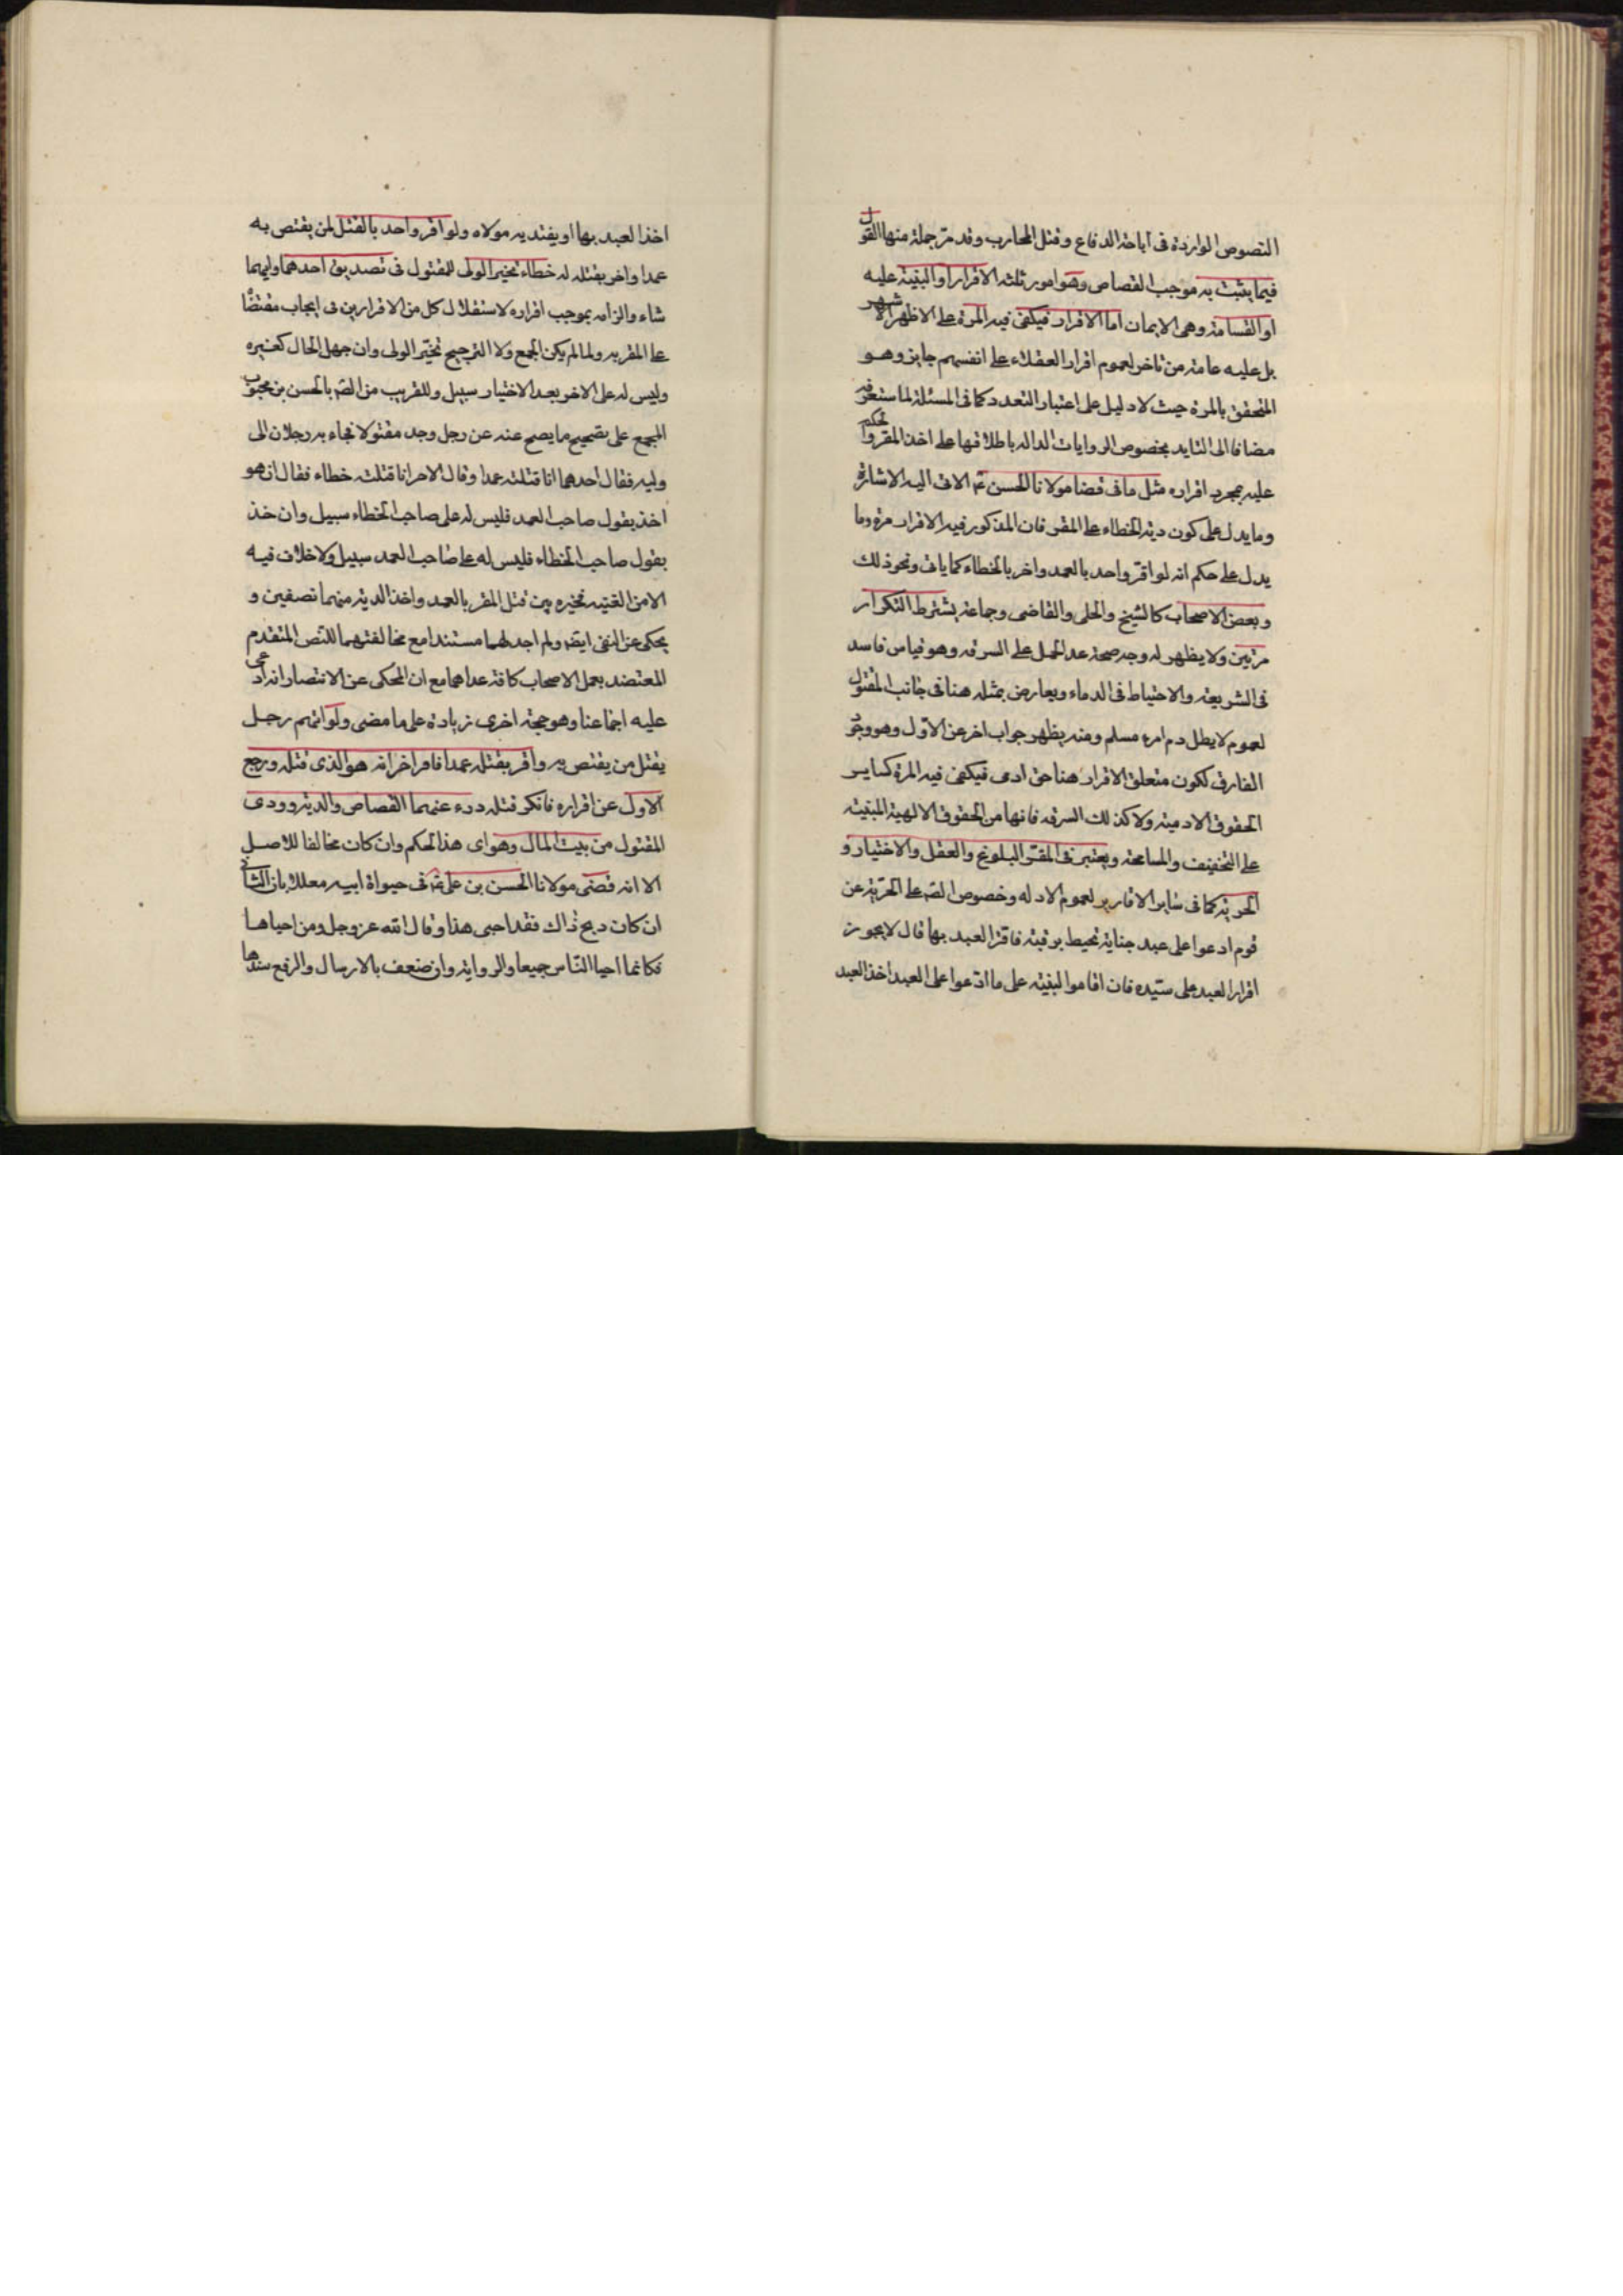 النصوص الواردة فى اباحة الدفاع وقتل المحارب وقد مر جملة منها القول
فيما يثبت به موجب القصاص وهو امور ثلثه الاقرار او البينة عليه
او القسامة وهى الايمان اما الاقرار فيكفى فيه المرة على الاظهر الاشهر
بل عليه عامة من تاخر لعموم اقرار العقلاء على انفسهم جايز وهو
المتحقق بالمرة حيث لا دليل على اعتبار التعدد كما فى المسئلة لما ستعرفه
مضافا الى التايد بخصوص الروايات الداله باطلاقها على اخذ المقر والحكم
عليه بمجرد اقراره مثل ما فى قضا مولانا الحسن ع الاتى اليه الاشارة
وما يدل على كون دية الخطاء على المقر فان المذكور فيه الاقرار مرة وما
يدل على حكم انه لو اقر واحد بالعمد واخر بالخطاء كما ياتى ونحو ذلك
وبعض الاصحاب كالشيخ والحلى والقاضى وجماعة يشترط التكرار
مرتين ولا يظهر له وجه صحة عدا الحمل على السرقه وهو قياس فاسد
فى الشريعة والاحتياط فى الدماء ويعارض بمثله هنا فى جانب المقتول
لعموم لا يطل دم امرء مسلم ومنه يظهر جواب اخر عن الاول وهو وجود
الفارق لكون متعلق الاقرار هنا حق ادمى فيكفى فيه المرة كساير
الحقوق الادمية ولا كذلك السرقه فانها من الحقوق الالهية المبنية
على التخفيف والمسامحة ويعتبر فى المقر البلوغ والعقل والاختيار و
الحرية كما فى ساير الاقارير لعموم الادله وخصوص الصم على الحرية عن
قوم ادعوا على عبد جناية تحيط برقبته فاقر العبد بها قال لا يجوز
اقرار العبد على سيده فان اقاموا البينة على ما ادعوا على العبد اخذ العبد
اخذ العبد بها او يفتديه مولاه ولو اقر واحد بالقتل لمن يقتص به
عمدا واخر بقتله له خطاء تخير الولى للمقتول فى تصديق احدهما وايهما
شاء والزامه بموجب اقراره لاستقلال كل من الاقرارين فى ايجاب مقتضاه
على المقر به ولما لم يكن الجمع ولا الترجيح تخير الولى وان جهل الحال كغيره
وليس له على الاخر بعد الاختيار سبيل وللقريب من الصم بالحسن بن محبوب
المجمع على تصحيح ما يصح عنه عن رجل وجد مقتولا فجاء به رجلان الى
وليه فقال احدهما انا قتلته عمدا وقال الاخر انا قتلته خطاء فقال ان هو
اخذ بقول صاحب العمد فليس له على صاحب الخطاء سبيل وان خذ
بقول صاحب الخطاء فليس له على صاحب العمد سبيل ولا خلاف فيه
الا من الغنيه تخيره بين قتل المقر بالعمد واخذ الدية منهما نصفين و
يحكى عن ايضا ولم اجد لهما مستندا مع مخالفتهما للنص المتقدم
المعتضد بعمل الاصحاب كافة عداهما مع ان المحكى عن الانتصار انه ادعى
عليه اجماعنا وهو حجة اخرى زيادة على ما مضى ولو اتهم رجل
يقتل من يقتص به واقر بقتله عمدا فاقر اخر انه هو الذى قتله ورجع
الاول عن اقراره فانكر قتله درء عنهما القصاص والدية وودى
المقتول من بيت المال وهو اى هذا الحكم وان كان مخالفا للاصل
الا انه قضى مولانا الحسن بن على ع فى حيواة ابيه معللا بان الثانى
ان كان ذبح ذاك فقد احيى هذا وقال الله عز وجل ومن احياها
فكانما احيا الناس جميعا والرواية وان ضعف بالارسال والرفع سندها